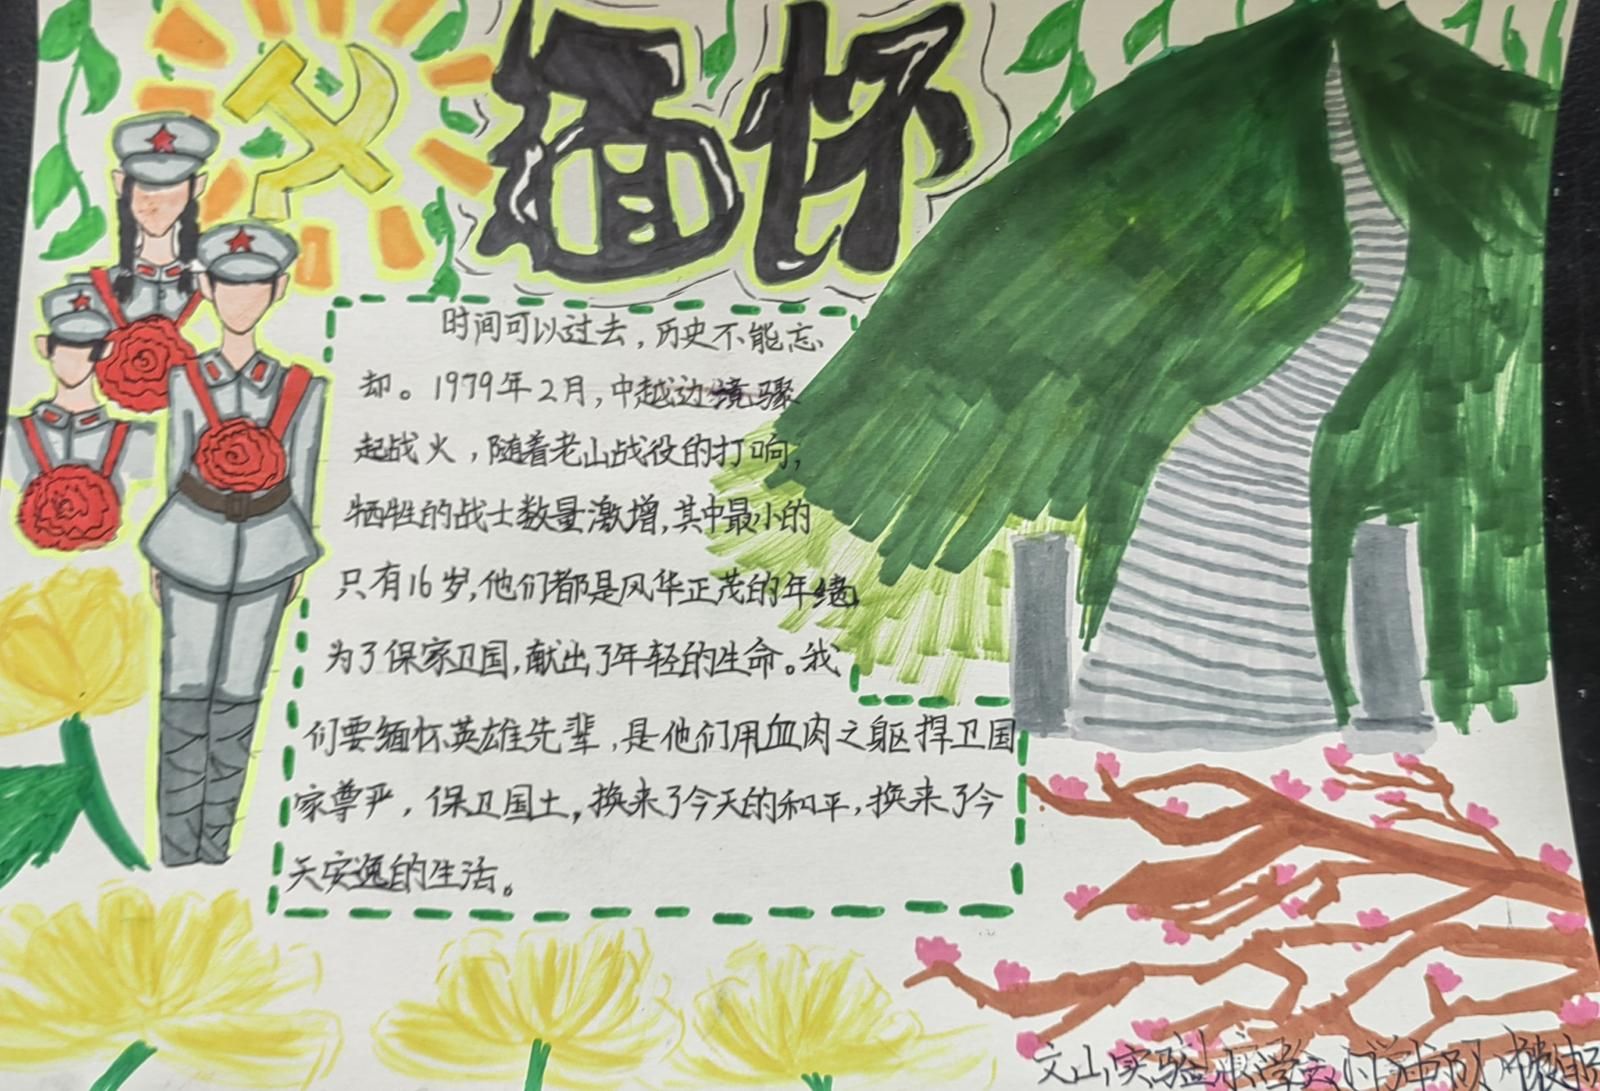 缅怀
时间可以过去，历史不能忘
却。1979年2月，中越边境骤
起战火，随着老山战役的打响，
牺牲的战士数量激增，其中最小的
只有16岁，他们都是风华正茂的年
为了保家卫国，献出了年轻的生命。我
们要缅怀英雄先辈，是他们用血肉之躯捍卫国
家尊严，保卫国土，换来了今天的和平，换来了今
天安逸的生活。
文山实验